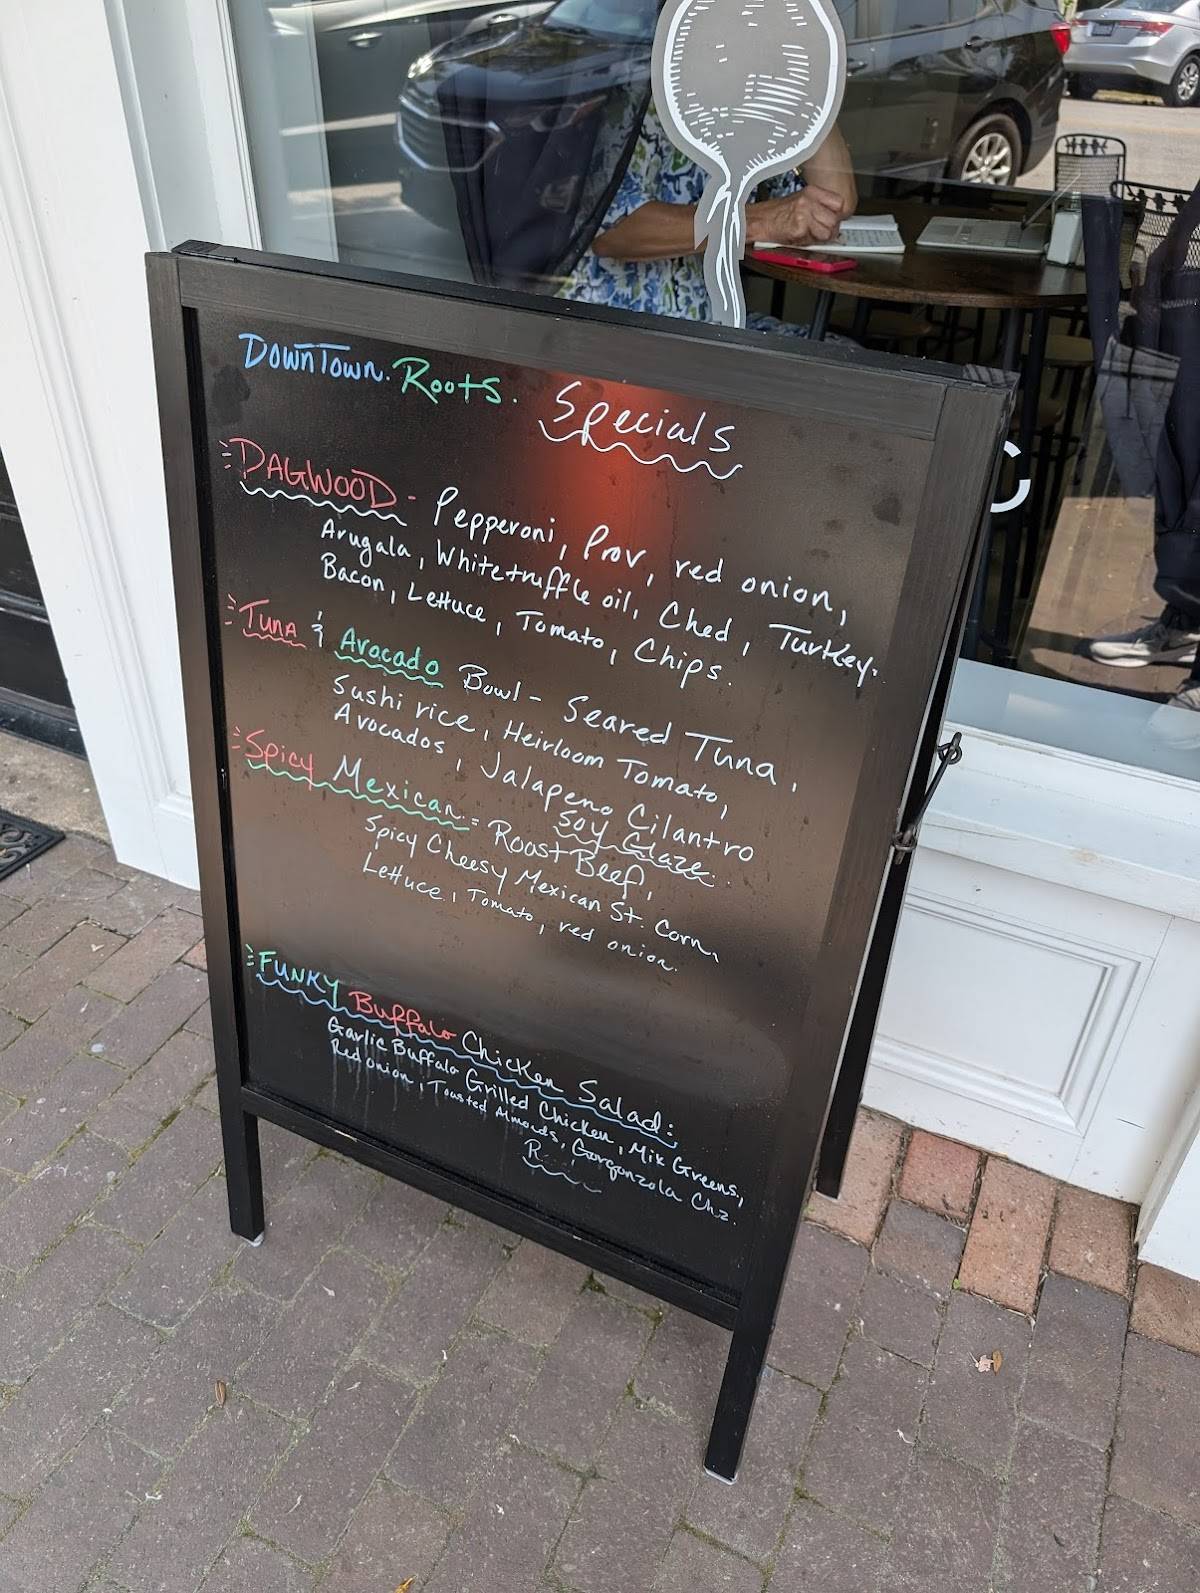 DownTown. Roots. Specials
DAGWOOD - Pepperoni, Prov, red onion,
Arugala, Whitetruffle oil, Ched, Turkey.
Bacon, Lettuce, Tomato, Chips.
Tuna & Avocado Bowl - Seared Tuna,
Sushi rice, Heirloom Tomato,
Avocados, Jalapeno Cilantro
Soy Glaze.
Spicy Mexican = Roast Beef,
Spicy Cheesy Mexican St. Corn,
Lettuce, Tomato, red onion.
FUNKY Buffalo Chicken Salad:
Garlic Buffalo Grilled Chicken, Mix Greens,
Red onion, Toasted Almonds, Gorgonzola Chz.